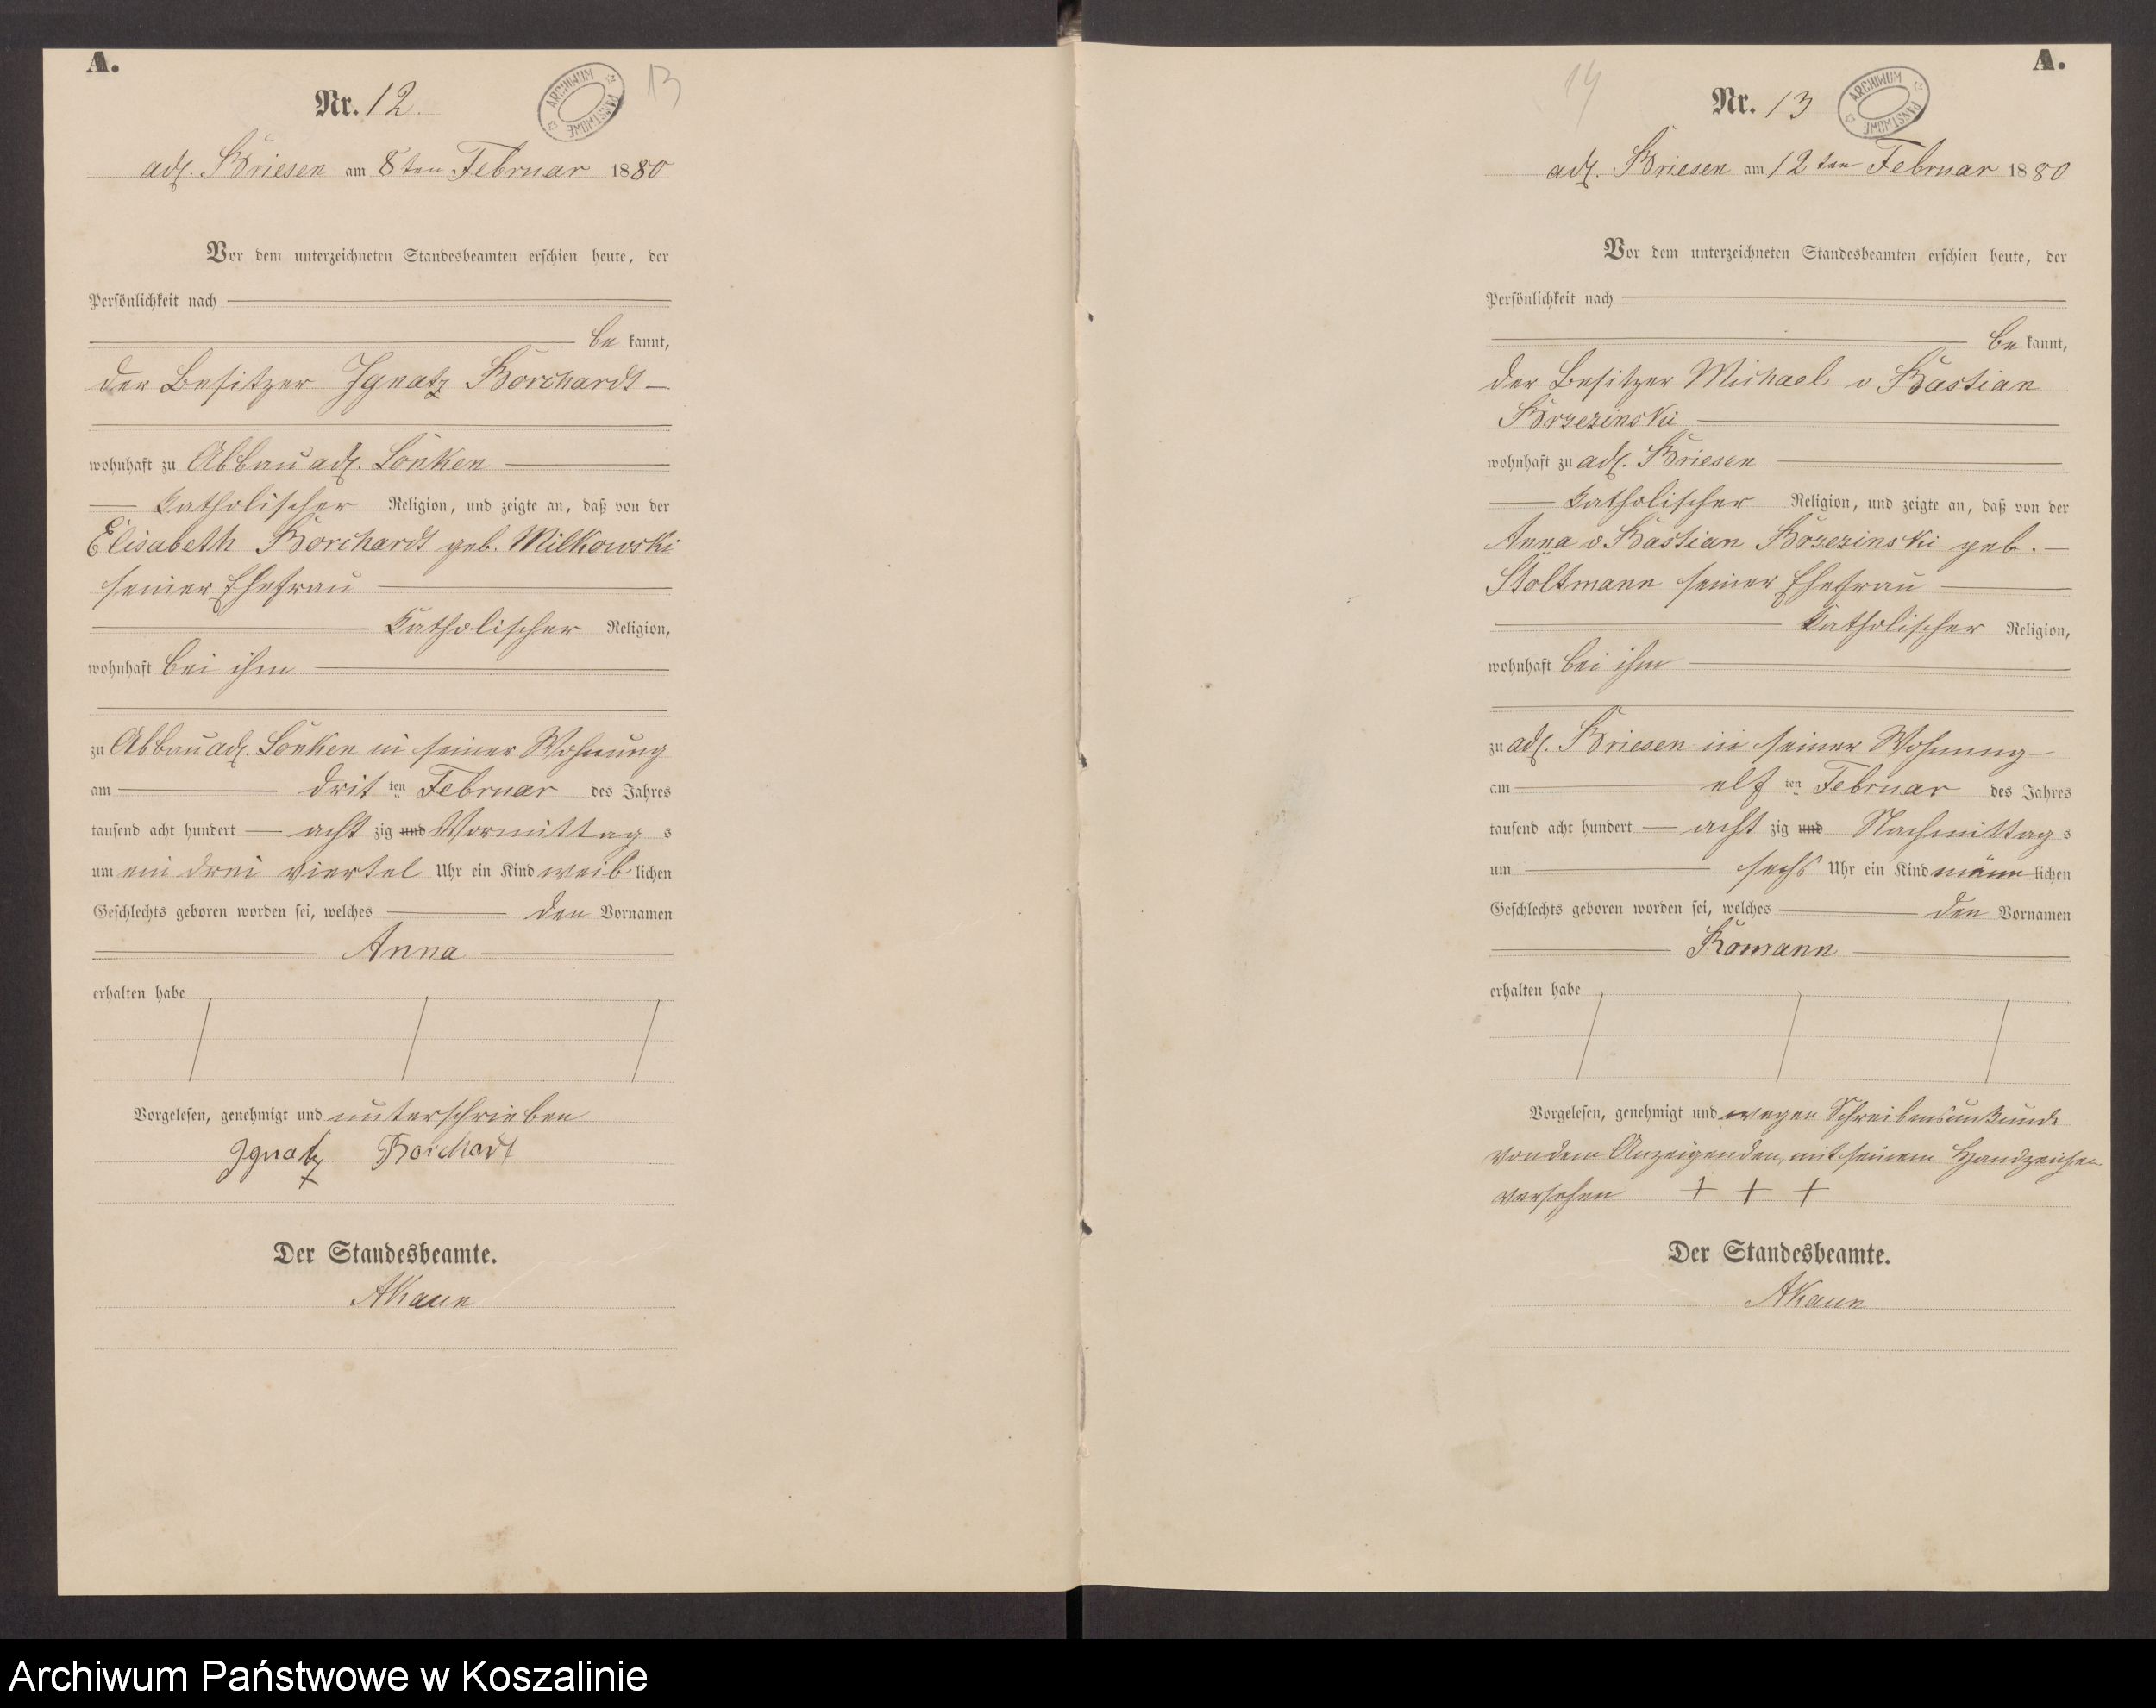 A.
Nr. 12.
13
ARCHIWUM PAŃSTWOWE
adl. Briesen am 8ten Februar 1880
Vor dem unterzeichneten Standesbeamten erschien heute, der
Persönlichkeit nach
be kannt,
der Besitzer Ignatz Borchardt
wohnhaft zu Abbau adl. Lonken
katholischer Religion, und zeigte an, daß von der
Elisabeth Borchardt geb. Milkowski
seiner Ehefrau
katholischer Religion,
wohnhaft bei ihm
zu Abbau adl. Lonken in seiner Wohnung
am drit ten Februar des Jahres
tausend acht hundert acht zig und Vormittag s
um ein drei viertel Uhr ein Kind weib lichen
Geschlechts geboren worden sei, welches den Vornamen
Anna
erhalten habe
Vorgelesen, genehmigt und unterschrieben
Ignatz Borchardt
Der Standesbeamte.
A.
14
Nr. 13
ARCHIWUM PAŃSTWOWE
adl. Briesen am 12ten Februar 1880
Vor dem unterzeichneten Standesbeamten erschien heute, der
Persönlichkeit nach
be kannt,
der Besitzer Michael v Bastian
Brzezinski
wohnhaft zu adl. Briesen
katholischer Religion, und zeigte an, daß von der
Anna v Bastian Brzezinski geb.
Stoltmann seiner Ehefrau
katholischer Religion,
wohnhaft bei ihm
zu adl. Briesen in seiner Wohnung
am elf ten Februar des Jahres
tausend acht hundert acht zig und Nachmittag s
um sechs Uhr ein Kind männ lichen
Geschlechts geboren worden sei, welches den Vornamen
Romann
erhalten habe
Vorgelesen, genehmigt und wegen Schreibensunkunde
von dem Anzeigenden, mit seinem Handzeichen
versehen + + +
Der Standesbeamte.
Archiwum Państwowe w Koszalinie